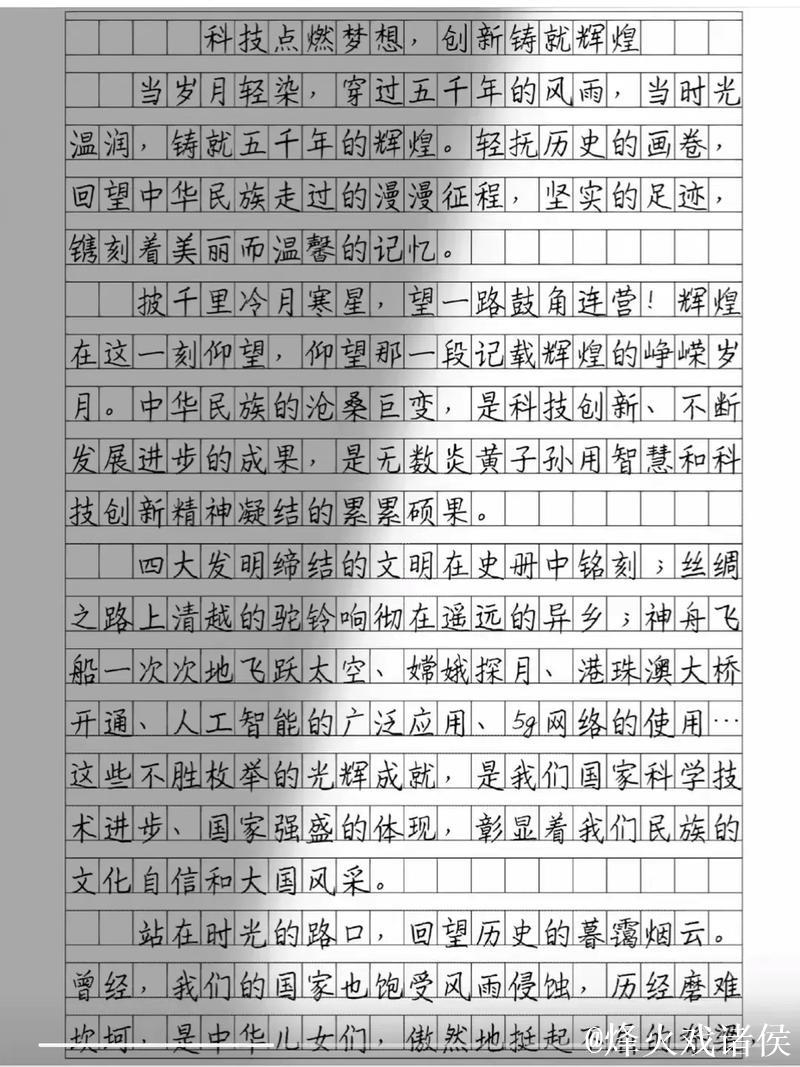 科技点燃梦想，创新铸就辉煌
当岁月轻染，穿过五千年的风雨，当时光
温润，铸就五千年的辉煌。轻抚历史的画卷，
回望中华民族走过的漫漫征程，坚实的足迹，
镌刻着美丽而温馨的记忆。
披千里冷月寒星，望一路鼓角连营！辉煌
在这一刻仰望，仰望那一段记载辉煌的峥嵘岁
月。中华民族的沧桑巨变，是科技创新、不断
发展进步的成果，是无数炎黄子孙用智慧和科
技创新精神凝结的累累硕果。
四大发明缔结的文明在史册中铭刻；丝绸
之路上清越的驼铃响彻在遥远的异乡；神舟飞
船一次次地飞跃太空、嫦娥探月、港珠澳大桥
开通、人工智能的广泛应用、5g网络的使用…
这些不胜枚举的光辉成就，是我们国家科学技
术进步、国家强盛的体现，彰显着我们民族的
文化自信和大国风采。
站在时光的路口，回望历史的暮霭烟云。
曾经，我们的国家也饱受风雨侵蚀，历经磨难
坎坷，是中华儿女们，傲然地挺起了
@烽火戏诸侯